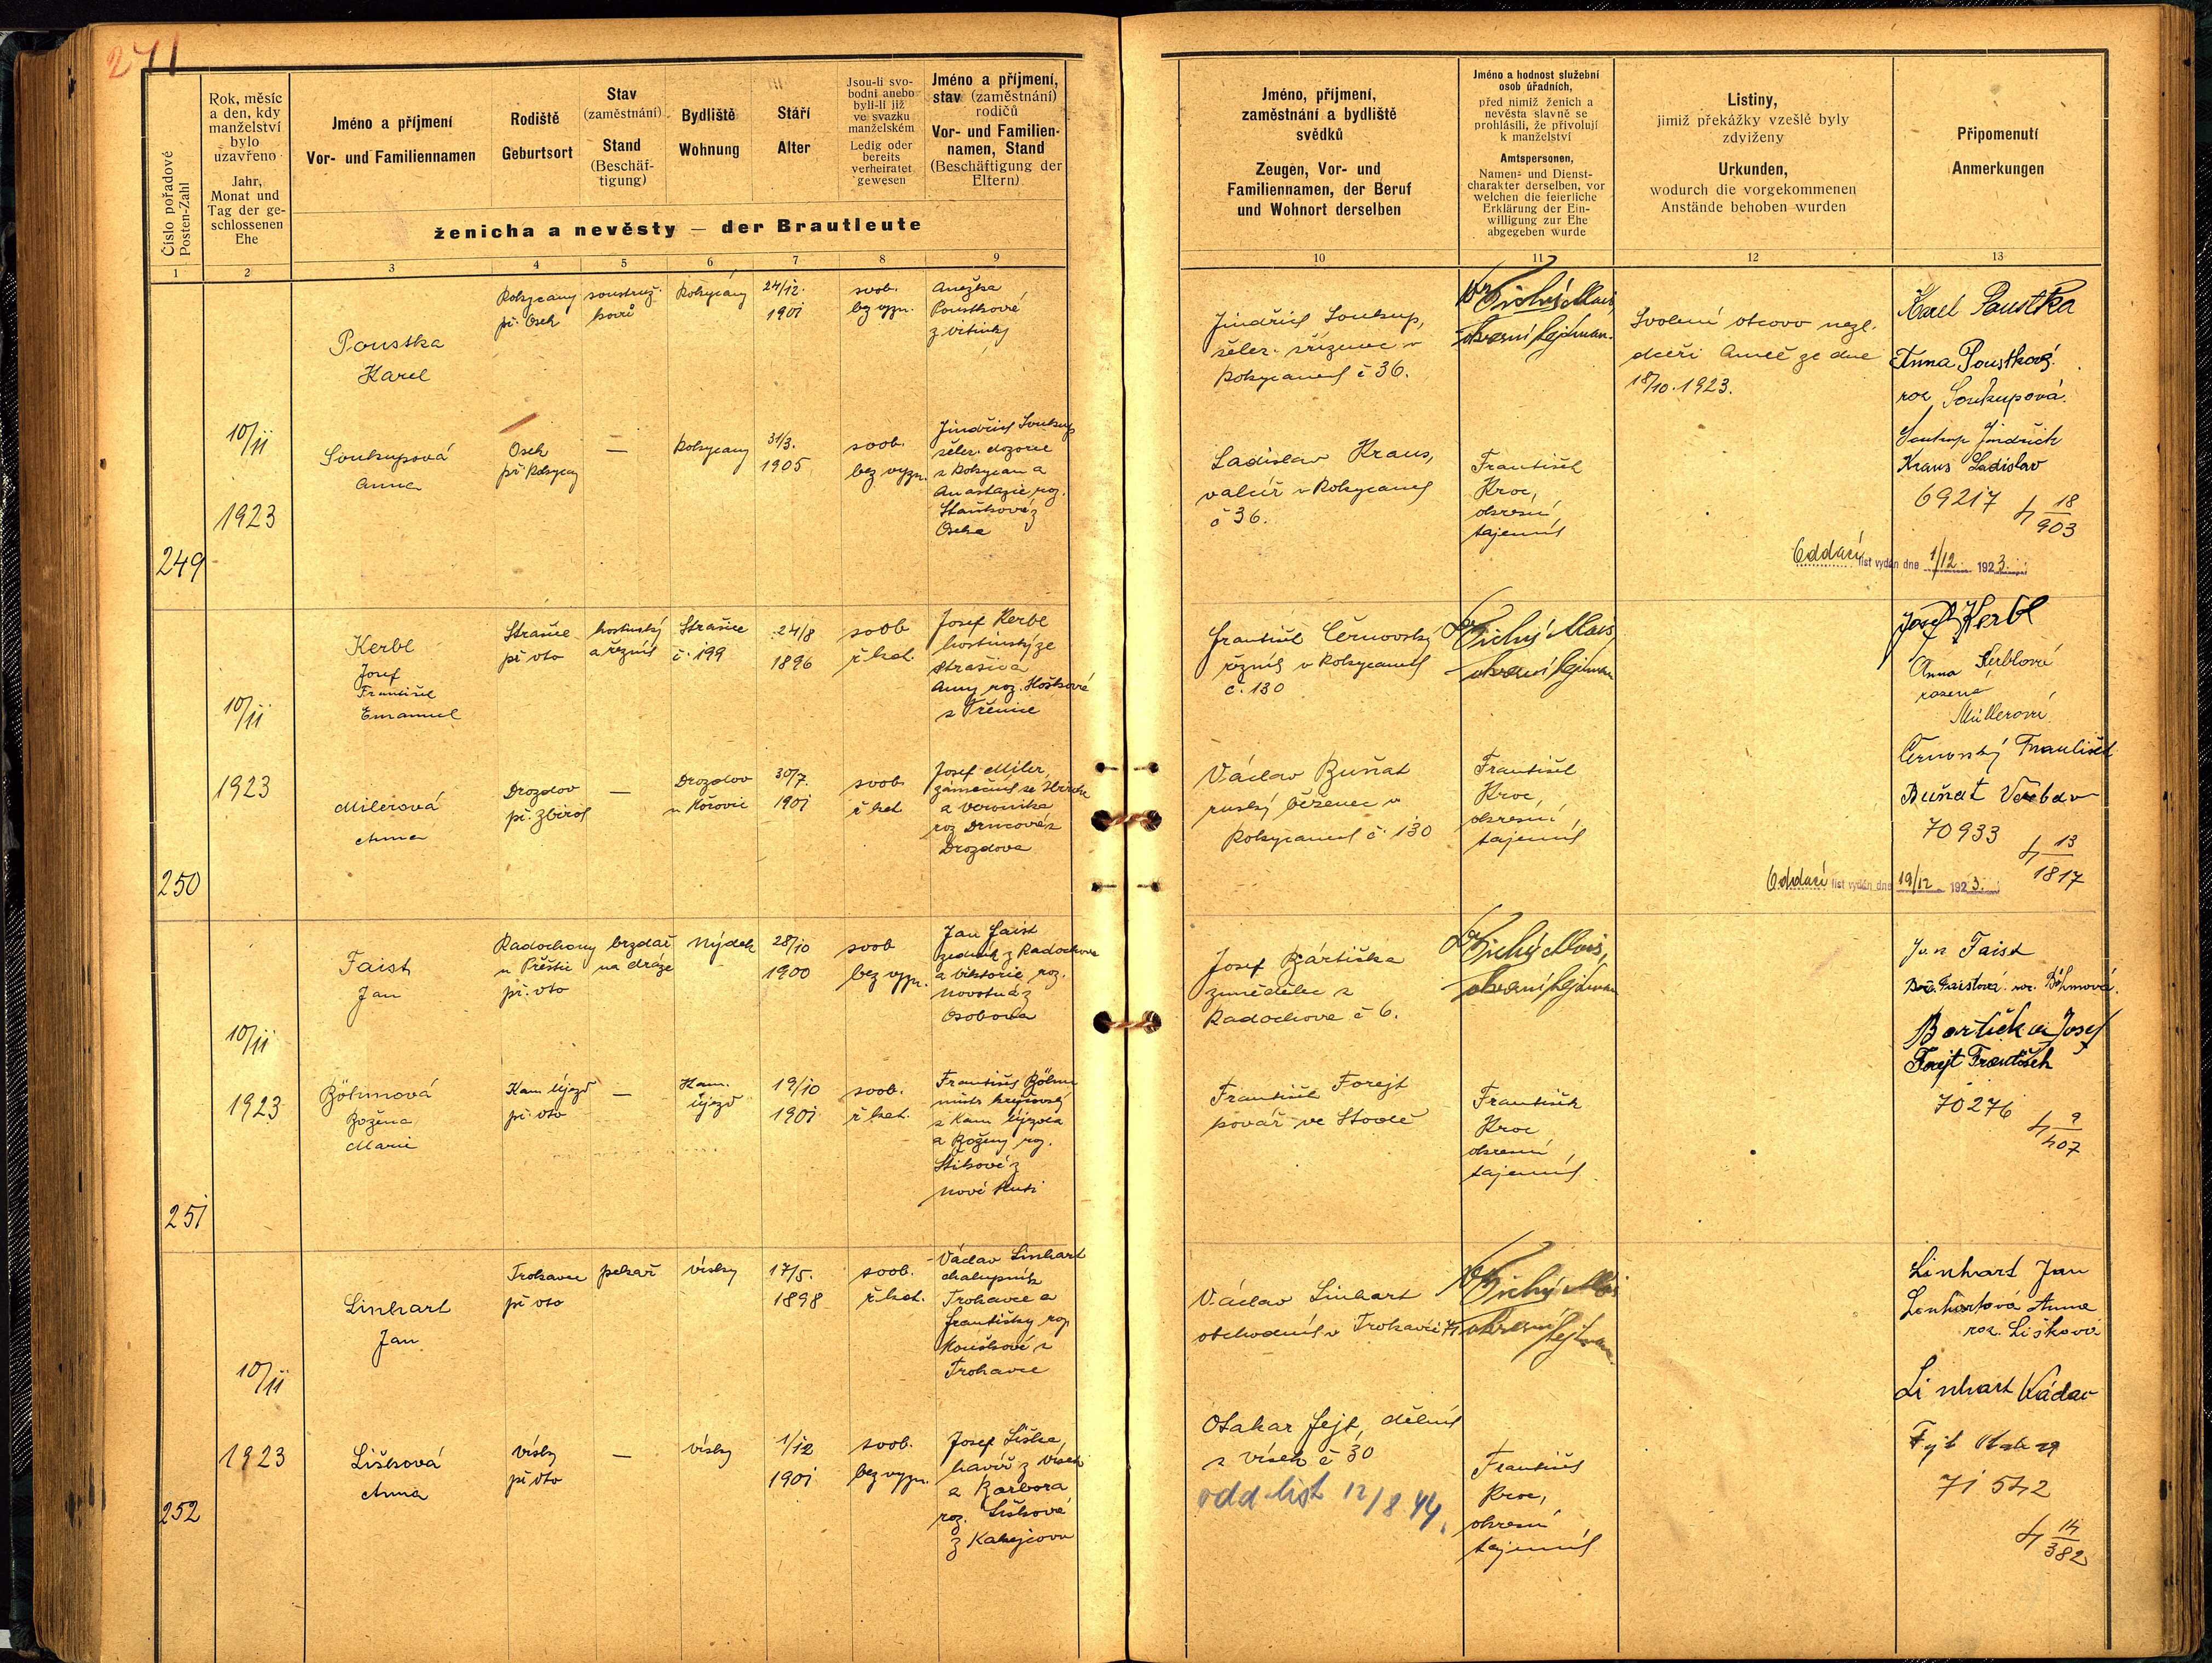 271
Číslo pořadové
Posten-Zahl
Rok, měsíc
a den, kdy
manželství
bylo
uzavřeno
Jahr,
Monat und
Tag der ge-
schlossenen
Ehe
Jméno a příjmení
Vor- und Familiennamen
Rodiště
Geburtsort
Stav
(zaměstnání)
Stand
(Beschäf-
tigung)
Bydliště
Wohnung
Stáří
Alter
Jsou-li svo-
bodni anebo
byli-li již
ve svazku
manželském
Ledig oder
bereits
verheiratet
gewesen
Jméno a příjmení,
stav (zaměstnání)
rodičů
Vor- und Familien-
namen, Stand
(Beschäftigung der
Eltern)
ženicha a nevěsty — der Brautleute
1 2 3 4 5 6 7 8 9
Jméno, příjmení,
zaměstnání a bydliště
svědků
Zeugen, Vor- und
Familiennamen, der Beruf
und Wohnort derselben
Jméno a hodnost služební
osob úřadních,
před nimiž ženich a
nevěsta slavně se
prohlásili, že přivolují
k manželství
Amtspersonen,
Namen- und Dienst-
charakter derselben, vor
welchen die feierliche
Erklärung der Ein-
willigung zur Ehe
abgegeben wurde
Listiny,
jimiž překážky vzešlé byly
zdviženy
Urkunden,
wodurch die vorgekommenen
Anstände behoben wurden
Připomenutí
Anmerkungen
10 11 12 13
249
10/11
1923
Poustka
Karel
Rokycany
př. Osek
soustruž-
Rokycany
24/12.
1901
svob.
bez vyzn.
Anežka
Poustková
Soukupová
Anna
Osek
př. Rokycany
—
Rokycany
31/3.
1905
svob.
bez vyzn.
Jindřich Soukup
želez. dozorce
z Rokycan a
Anastazie roz.
Oseka
Jindřich Soukup,
želez. zřízenec v
Rokycanech č 36.
Ladislav Kraus,
valcíř v Rokycanech
č 36.
Dr Tichý Alois,
okresní hejtman.
František
Kroc,
okresní
tajemník
Svolení otcovo nezl.
dceři Anně ze dne
18/10. 1923.
Karel Poustka
Anna Poustková.
roz. Soukupová.
Soukup Jindřich
Kraus Ladislav
69217
4 18/903
Oddací list vydán dne 1/12 1923.
250
10/11
1923
Kerbl
Josef
František
Emanuel
Strašice
př. oto
hostinský
a řezník
Strašice
č. 199
24/8
1896
svob
ř. kat.
Josef Kerbl
hostinský ze
Strašic a
Anny roz. Hoškové
Milerová
Anna
Drozdov
př. Zbiroh
—
Drozdov
30/7.
1901
svob.
ř. kat
Josef Miler,
a Veronika
Drozdova
František Černovský
řezník v Rokycanech
č. 130
Václav Buňat
ruský běženec v
Rokycanech č. 130
Dr Tichý Alois,
okresní hejtman
František
Kroc,
okresní
tajemník
Josef Kerbl
Anna Kerblová
rozená
Müllerová
Černovský František
Buňat Václav
70933
4 13/1817
Oddací list vydán dne 19/12 1923.
251
10/11
1923
Faist
Jan
Radochovy
u Přeštic
př. oto
brzdař
na dráze
Nýdek
28/10
1900
svob
bez vyzn.
Jan Faist
zedník z Radochova
a Viktorie roz.
Novotná z
Böhmová
Božena
Marie
Kam. Újezd
př. oto
—
Kam.
Újezd
19/10
1901
svob.
ř. kat.
František Böhm
z Kam Újezda
a Boženy roz.
Nové Huti
Josef Bártička
zemědělec z
Radochova č 6.
František Forejt
Dr Tichý Alois,
okresní hejtman
František
Kroc
okresní
tajemník
Jan Faist
Bož. Faistová roz. Böhmová.
Bartička Josef
Forejt František
70276
4 9/407
252
10/11
1923
Linhart
Jan
Trokavec
př oto
pekař
Vísky
17/5.
1898
svob.
ř. kat.
Václav Linhart
chalupník
Trokavce a
Františky roz.
Trokavce
Lišková
Anna
Vísky
př. oto
—
Vísky
1/12
1901
svob.
bez vyzn.
Josef Liška
havíř z Vísek
a Barbora
roz. Lišková
Václav Linhart
obchodník v Trokavci 41
Otakar Fejt, dělník
z Vísek č 30
odd list 12/8 44.
Dr Tichý Alois
okresní hejtman.
František
Kroc,
okresní
tajemník
Linhart Jan
Linhartová Anna
roz. Lišková
Linhart Václav
Fejt Otakar
71542
4 14/382